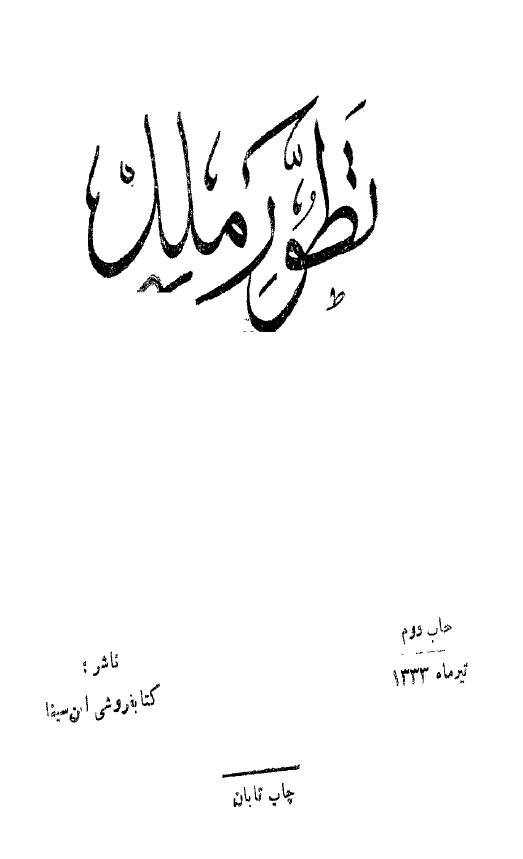 تَطَوُّرِ مِلَل
چاپ دوم
تیرماه ۱۳۳۳
ناشر :
کتابفروشی ابن سینا
چاپ تابان